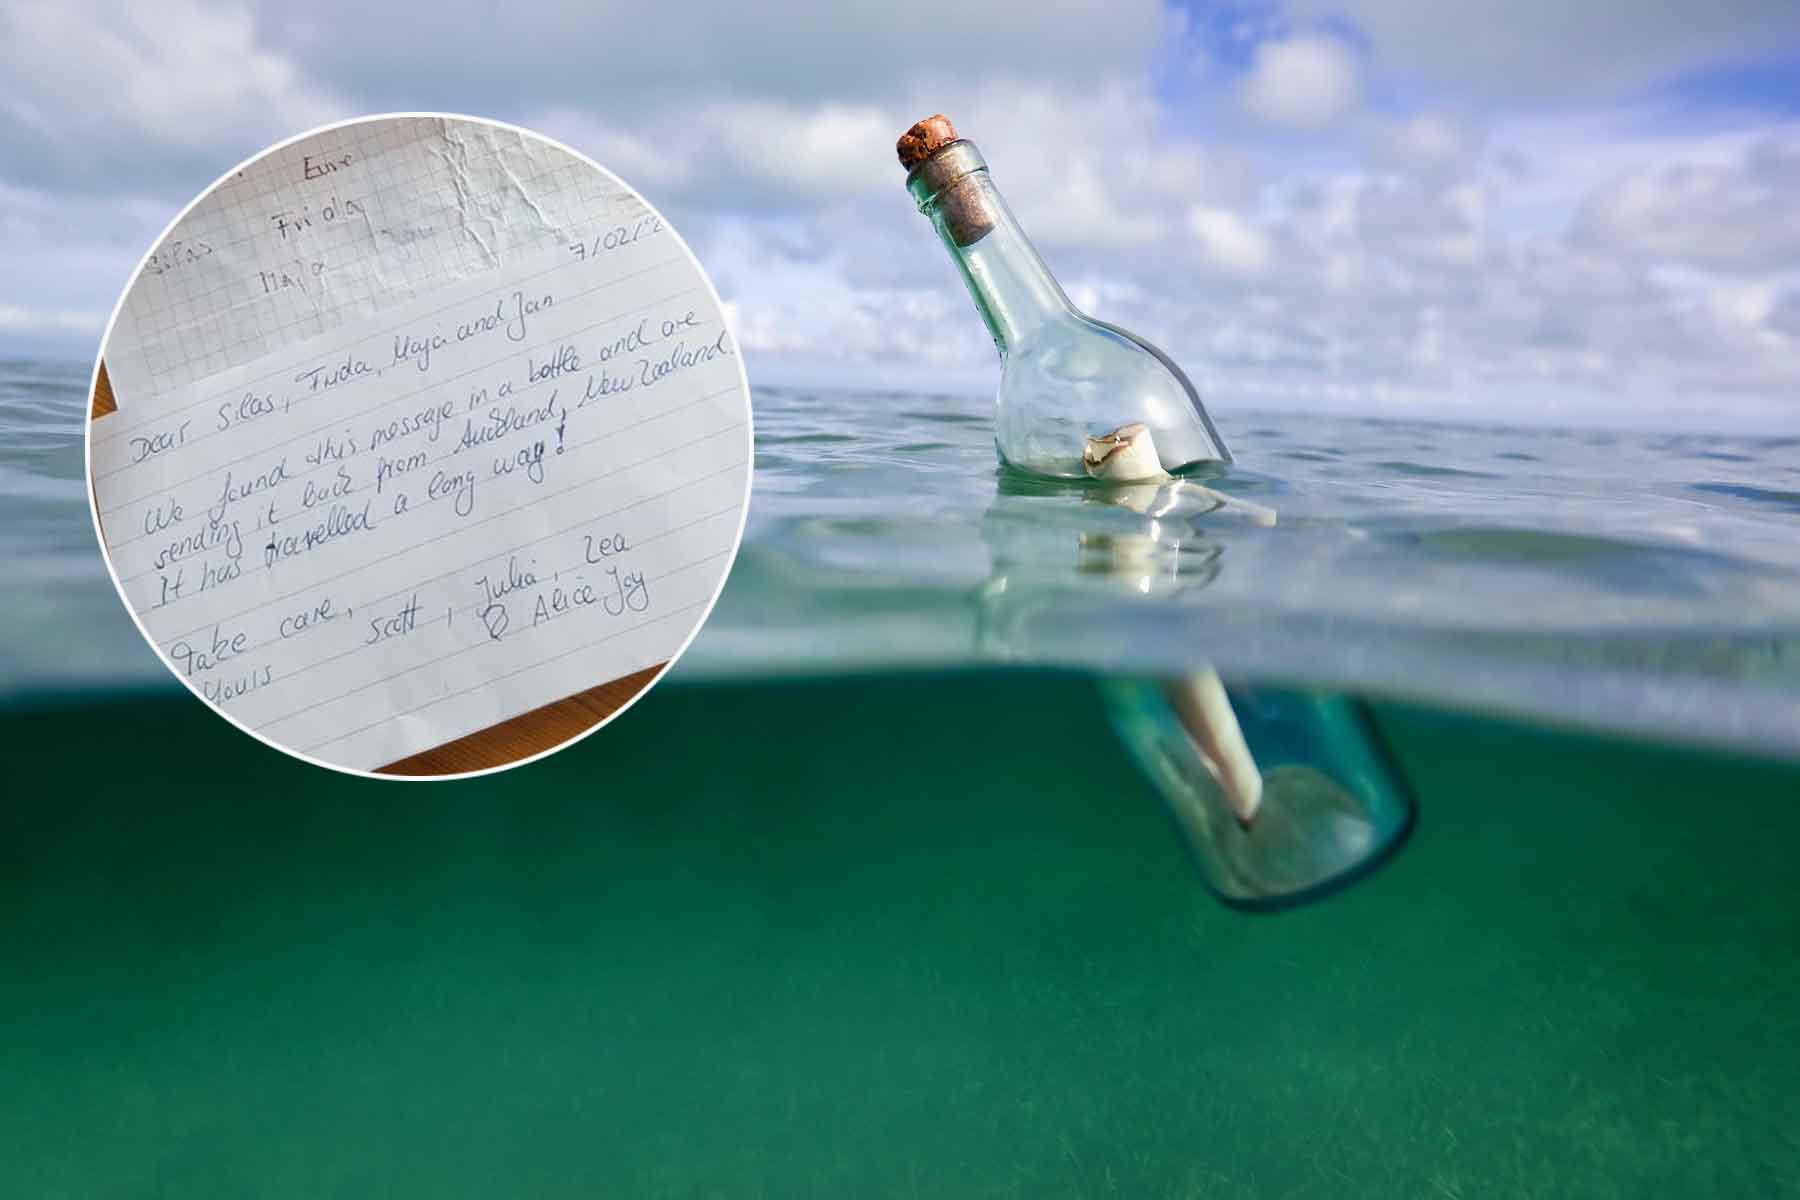 Eure
Frida
Silas
Jan
Maja
7/02/2
Dear Silas, Frida, Maja and Jan
We found this message in a bottle and are
sending it back from Auckland, New Zealand.
It has travelled a long way!
Take care,
Yours Scott, Julia, Lea
& Alice Joy